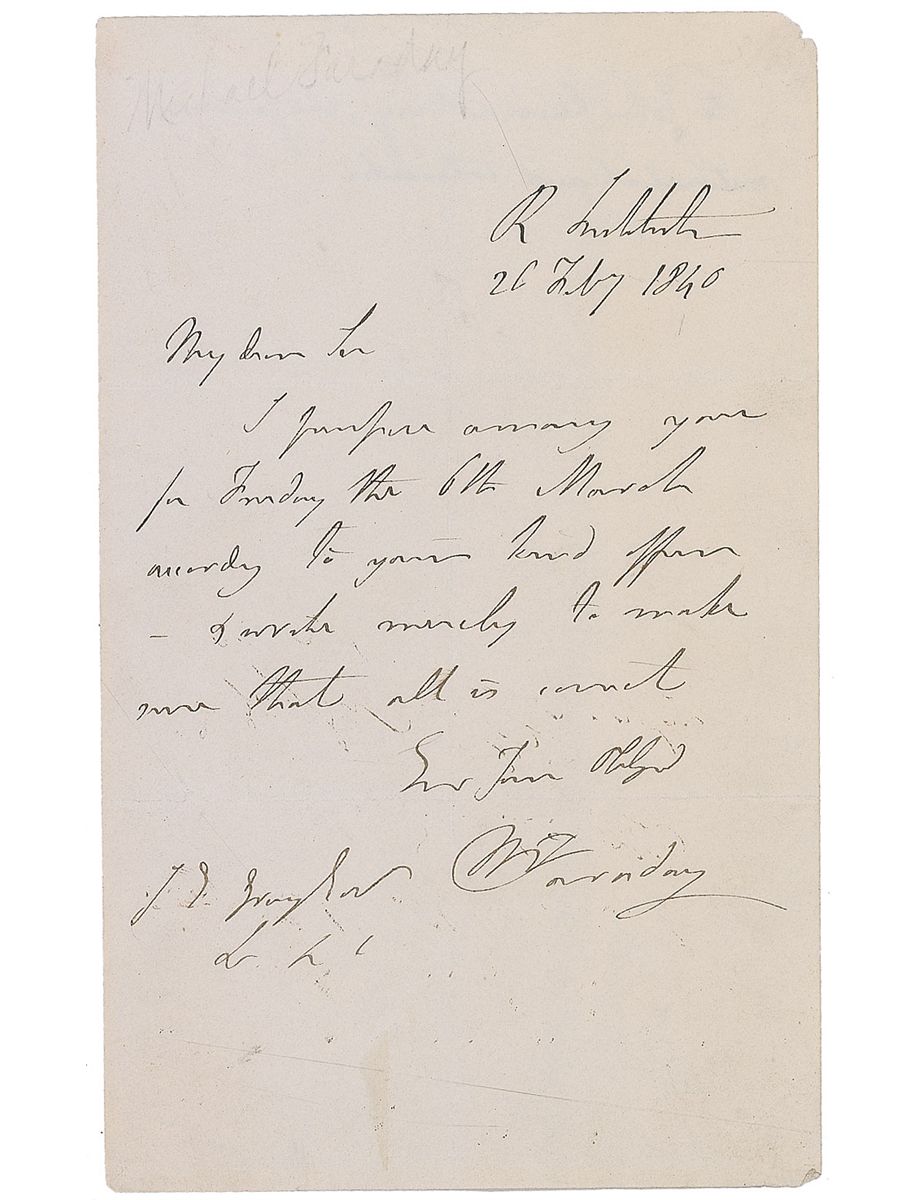 Michael Faraday
R Institution
26 Feby 1840
My dear Sir
I propose announcing you
for Friday the 6th March
according to your kind offer
- & write merely to make
sure that all is correct
Ever Your Obligd
M Faraday
J E Gray Esq
&c &c &c